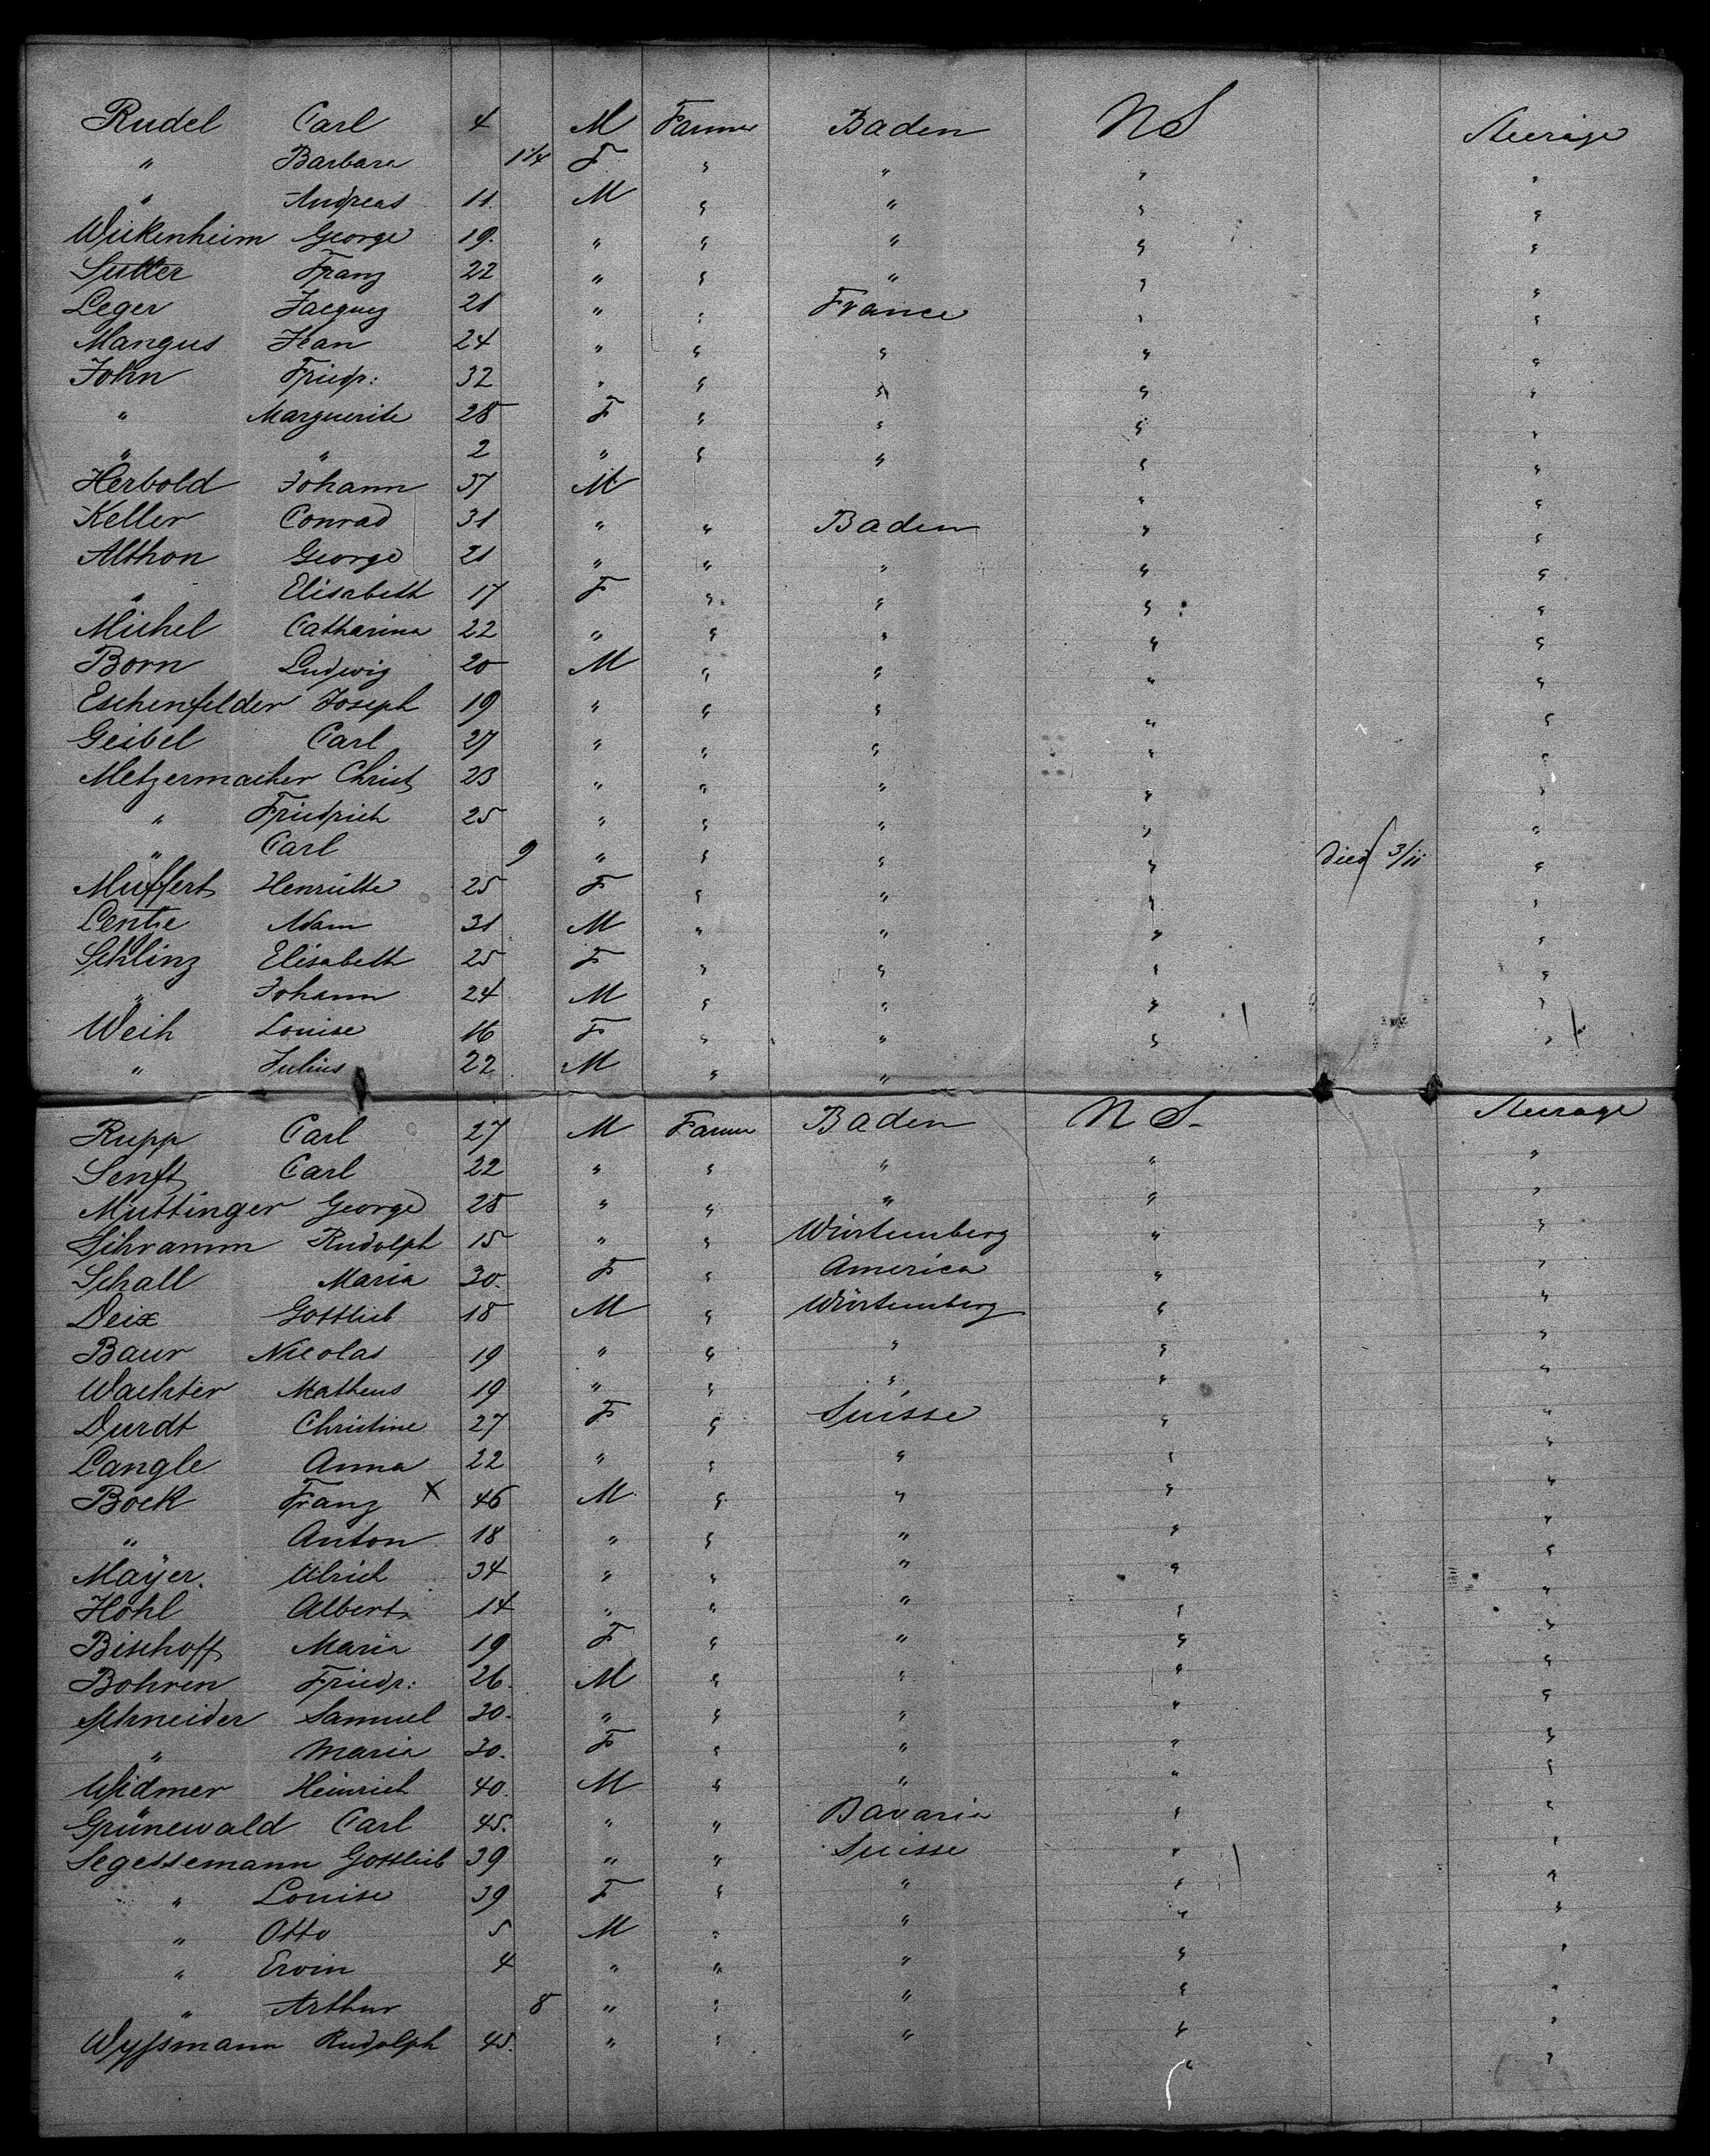 Rudel Carl 4 M Farmer Baden N S Steerage
" Barbara 1 1/4 F " " " "
" Andreas 11 M " " " "
Wickenheim George 19. " " " " "
Sutter Franz 22 " " " " "
Leger Jacques 21 " " France " "
Mangus Jean 24 " " " " "
John Friedr: 32 " " " " "
" Marguerite 28 F " " " "
" " 2 " " " " "
Herbold Johann 37 M " "
Keller Conrad 31 " " Baden " "
Althon George 21 " " " " "
" Elisabeth 17 F " " " "
Michel Catharina 22 " " " " "
Born Ludwig 20 M " " " "
Eschenfelder Joseph 19 " " " " "
Geibel Carl 27 " " " " "
Metzermacher Christ 23 " " " " "
" Friedrich 25 " " " " "
" Carl 9 " " " " died 3/11 "
Muffert Henriette 25 F " " " "
Adam 31 M " " " "
Schling Elisabeth 25 F " " " "
" Johann 24 M " " " "
Weih Louise 16 F " " " "
" Julius 22 M " "
Rupp Carl 27 M Farmer Baden N S. Steerage
Senft Carl 22 " " " " "
Muttinger George 28 " " " " "
Schramm Rudolph 15 " " Würtemberg " "
Schall Maria 30. F " America " "
Deix Gottlieb 18 M " Würtemberg " "
Baur Nicolas 19 " " " " "
Wachter Matheus 19 " " " " "
Durdt Christine 27 F " Suisse " "
Langle Anna 22 " " " " "
Bock Franz x 46 M " " " "
" Anton 18 " " " " "
Mayer. Ulrich 34 " " " " "
Hohl Albert 14 " " " " "
Bischoff Maria 19 F " " " "
Bohren Friedr: 26. M " " " "
Schneider Samuel 30. " " " " "
" Maria 30. F " " " "
Widmer Heinrich 40. M " " " "
Grünewald Carl 45. " " Bavaria " "
Segessemann Gottlieb 39 " " Suisse " "
" Louise 39 F " " " "
" Otto 5 M " " " "
" Ervin 4 " " " " "
" Arthur 8 " " " " "
Wyssmann Rudolph 45. " " " " "